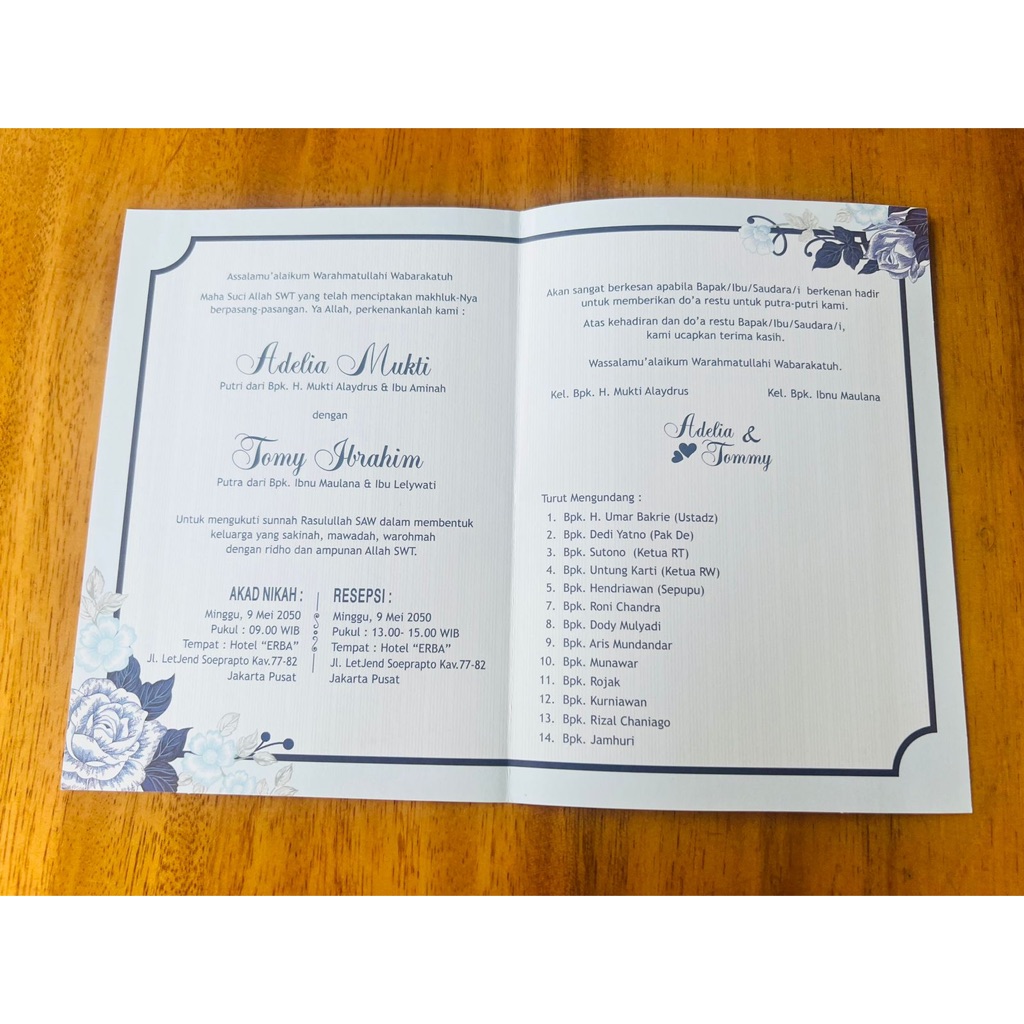 Assalamu'alaikum Warahmatullahi Wabarakatuh
Maha Suci Allah SWT yang telah menciptakan makhluk-Nya
berpasang-pasangan. Ya Allah, perkenankanlah kami :
Adelia Mukti
Putri dari Bpk. H. Mukti Alaydrus & Ibu Aminah
dengan
Tomy Ibrahim
Putra dari Bpk. Ibnu Maulana & Ibu Lelywati
Untuk mengukuti sunnah Rasulullah SAW dalam membentuk
keluarga yang sakinah, mawadah, warohmah
dengan ridho dan ampunan Allah SWT.
AKAD NIKAH :
Minggu, 9 Mei 2050
Pukul : 09.00 WIB
Tempat : Hotel "ERBA"
Jl. LetJend Soeprapto Kav.77-82
Jakarta Pusat
RESEPSI :
Minggu, 9 Mei 2050
Pukul : 13.00- 15.00 WIB
Tempat : Hotel "ERBA"
Jl. LetJend Soeprapto Kav.77-82
Jakarta Pusat
Akan sangat berkesan apabila Bapak/Ibu/Saudara/i berkenan hadir
untuk memberikan do'a restu untuk putra-putri kami.
Atas kehadiran dan do'a restu Bapak/Ibu/Saudara/i,
kami ucapkan terima kasih.
Wassalamu'alaikum Warahmatullahi Wabarakatuh.
Kel. Bpk. H. Mukti Alaydrus
Kel. Bpk. Ibnu Maulana
Adelia &
Tommy
Turut Mengundang :
1. Bpk. H. Umar Bakrie (Ustadz)
2. Bpk. Dedi Yatno (Pak De)
3. Bpk. Sutono (Ketua RT)
4. Bpk. Untung Karti (Ketua RW)
5. Bpk. Hendriawan (Sepupu)
7. Bpk. Roni Chandra
8. Bpk. Dody Mulyadi
9. Bpk. Aris Mundandar
10. Bpk. Munawar
11. Bpk. Rojak
12. Bpk. Kurniawan
13. Bpk. Rizal Chaniago
14. Bpk. Jamhuri